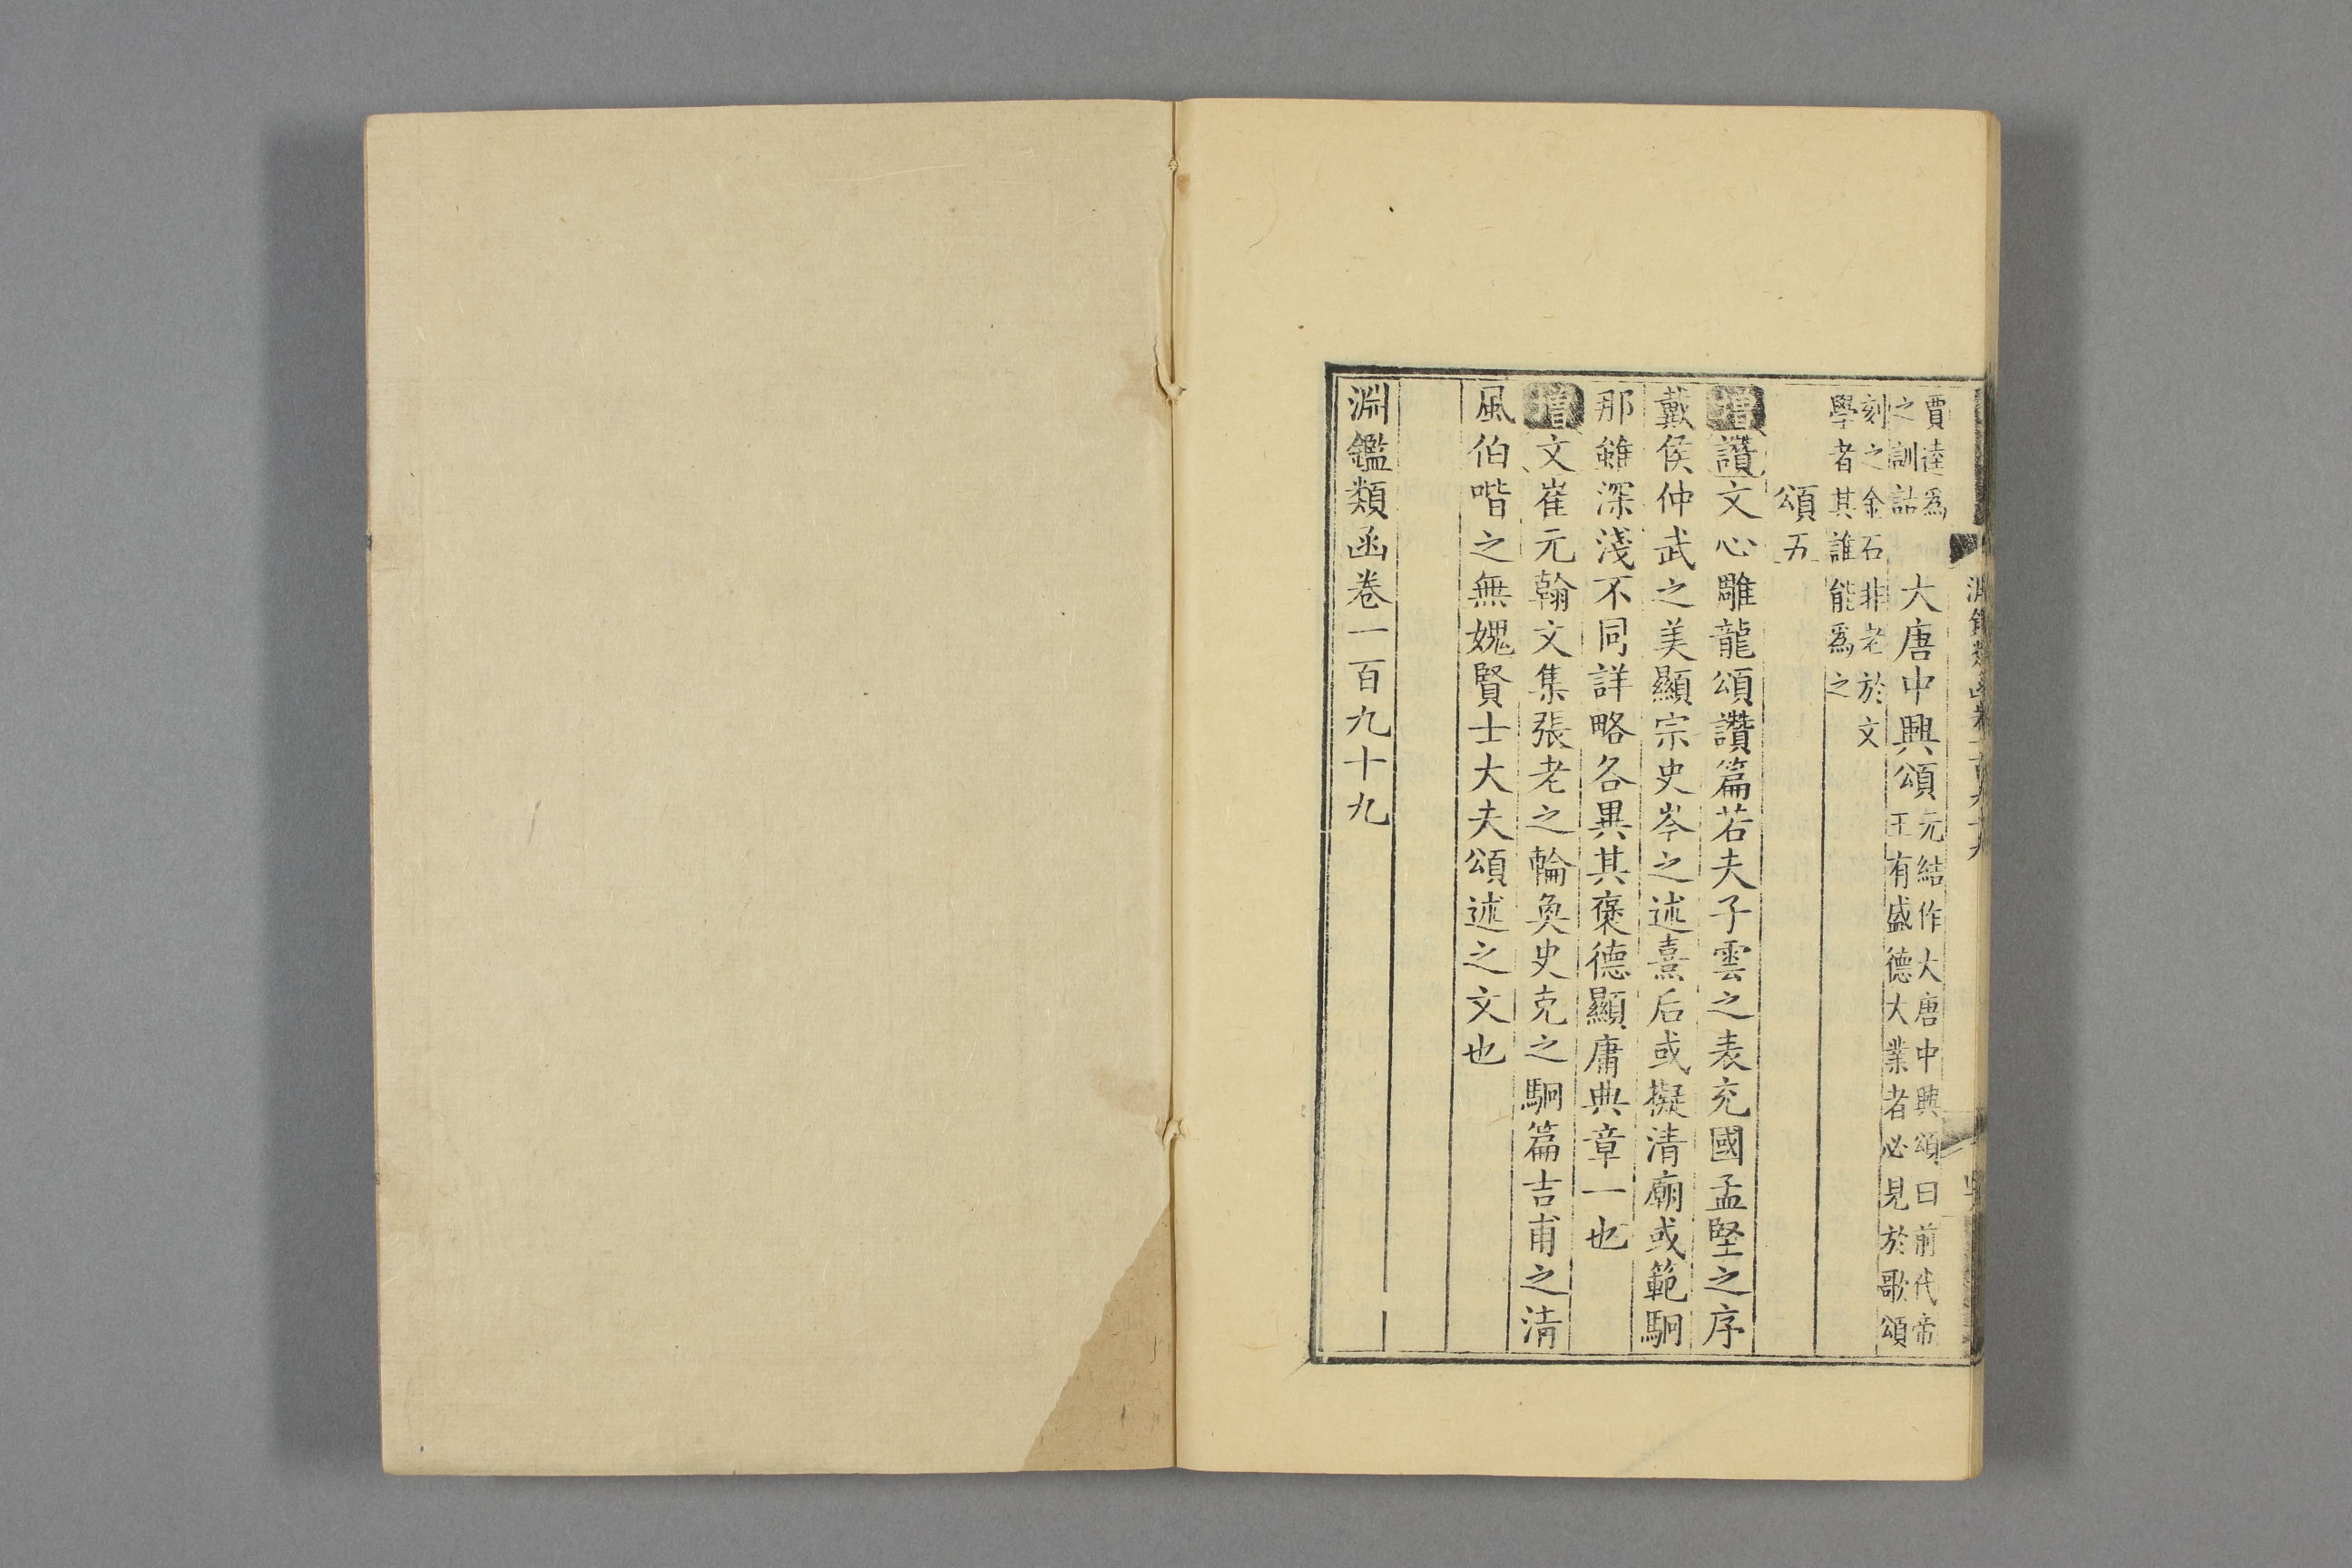 賈逵爲
之訓詁
大唐中興頌
元結作大唐中興頌曰前代帝
王有盛德大業者必見於歌頌
刻之金石非老於文
學者其誰能爲之
頌五
增讚文心雕龍頌讚篇若夫子雲之表充國孟堅之序
戴侯仲武之美顯宗史岑之述熹后或擬清廟或範駉
那雖深淺不同詳略各異其褒德顯庸典章一也
增文崔元翰文集張老之輪奐史克之駉篇吉甫之清
風伯喈之無媿賢士大夫頌述之文也
淵鑑類函卷一百九十九